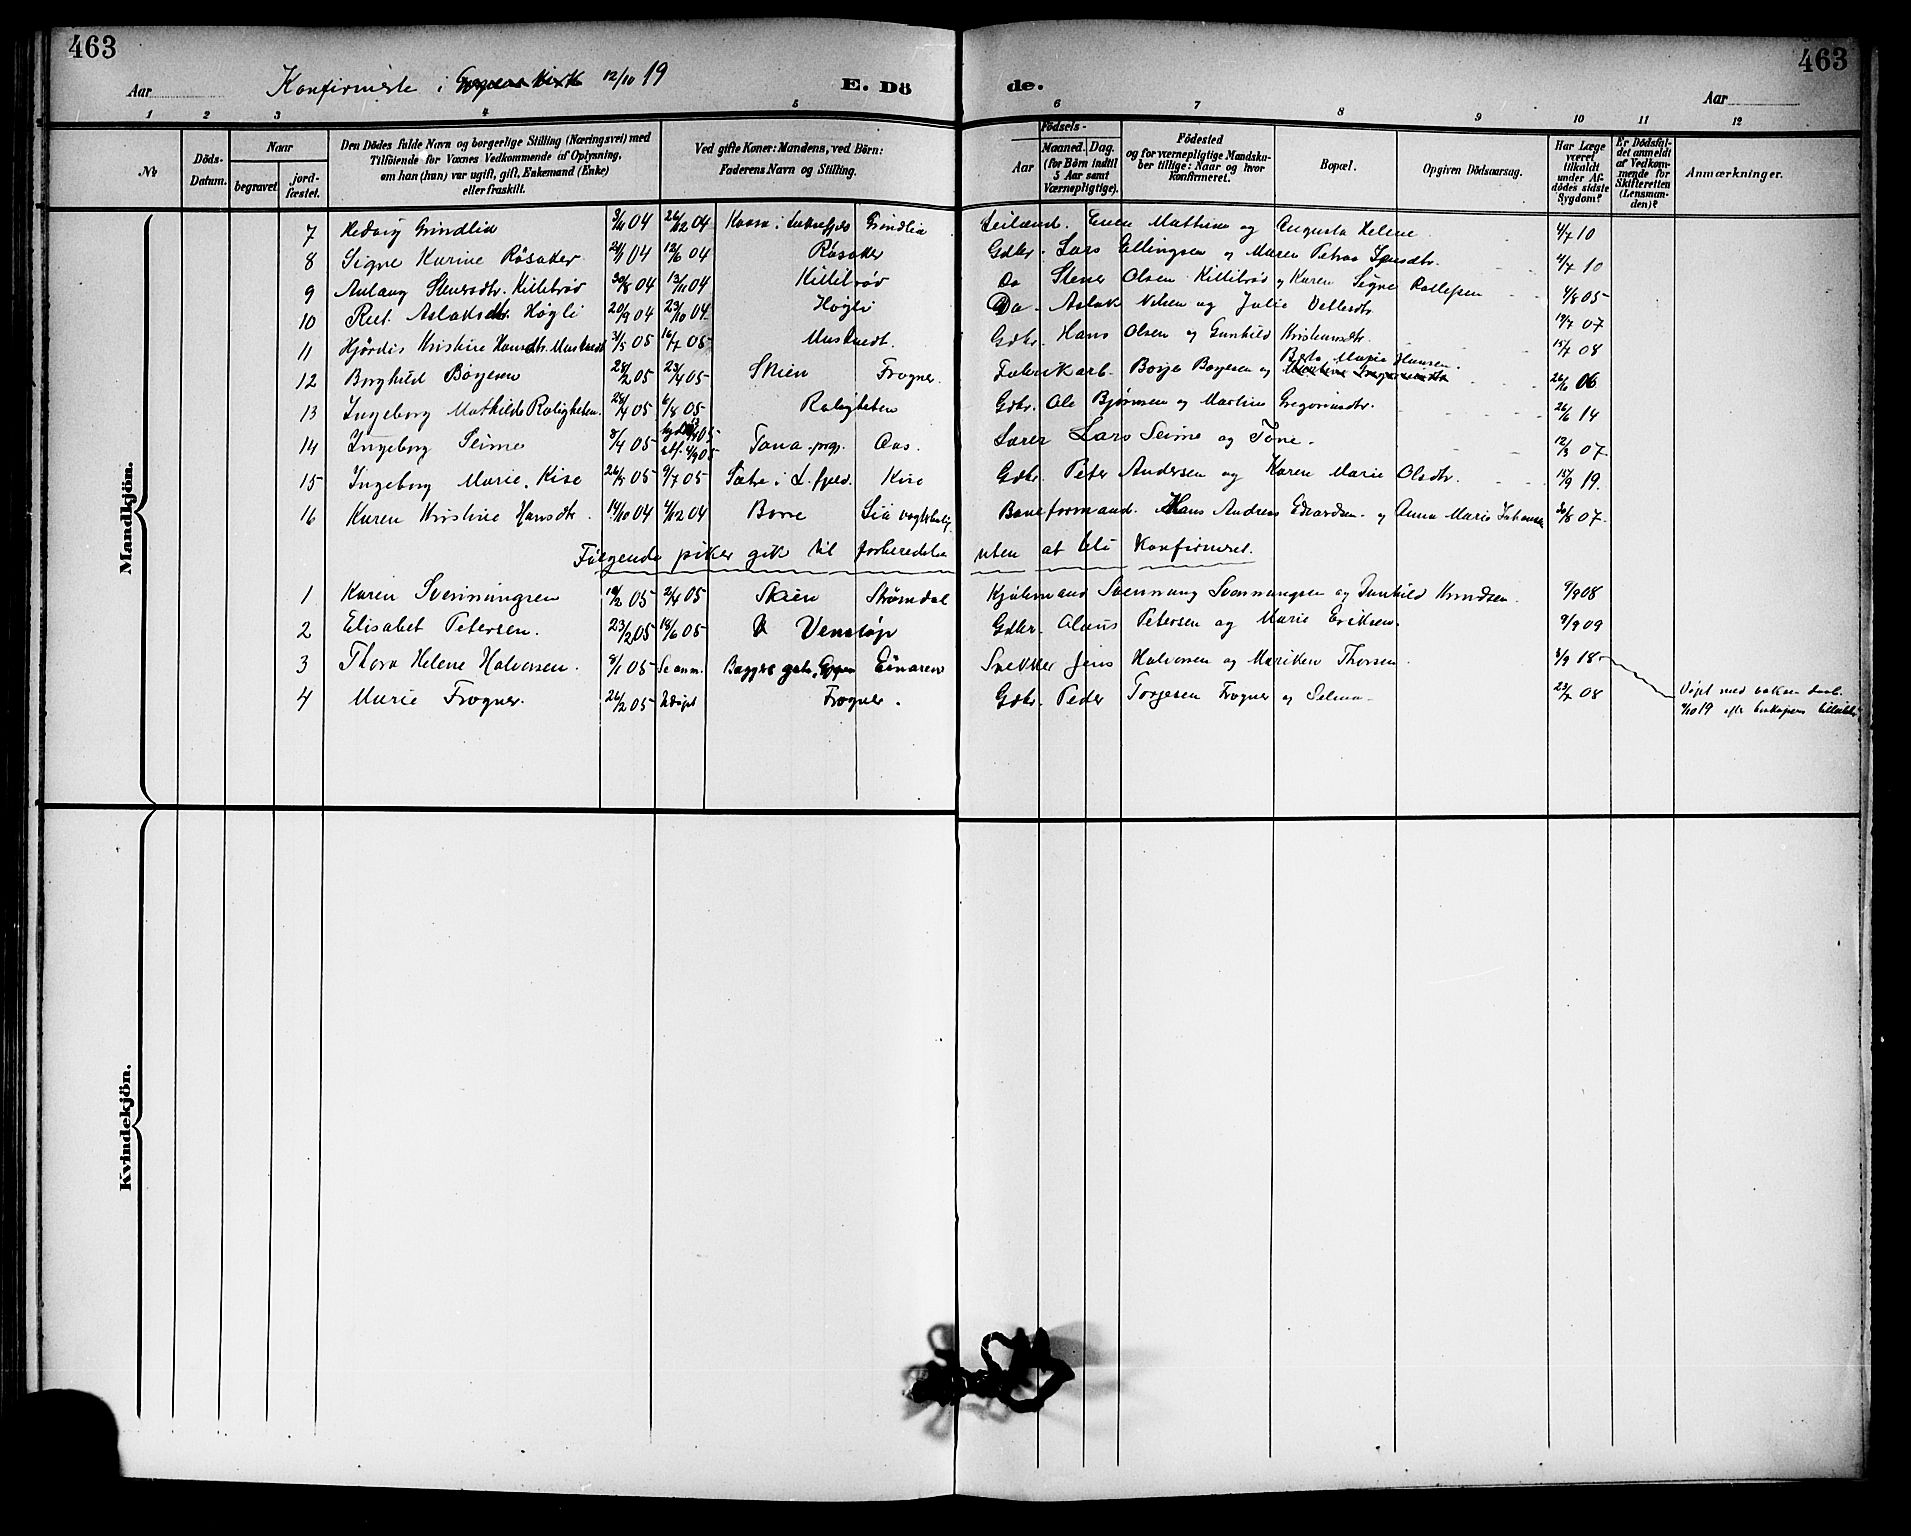 463
463
Konfirmerte i 12/10 19
Aar
E. Dö
de.
Aar
1 2 3 4 5 6 7 8 9 10 11 12
No
Döds-Datum.
Naar
begravet
jord-fæstet.
Den Dödes fulde Navn og borgerlige Stilling (Næringsvei) med
Tilföiende for Voxnes Vedkommende af Oplysning,
om han (hun) var ugift, gift, Enkemand (Enke)
eller fraskilt.
Ved gifte Koner: Mandens, ved Börn:
Faderens Navn og Stilling.
Födsels-
Aar
Maaned. Dag.
(for Börn indtil
5 Aar samt
Værnepligtige).
Födested
og for værnepligtige Mandska-
ber tillige: Naar og hvor
konfirmeret.
Bopæl.
Opgiven Dödsaarsag.
Har Læge
været
tilkaldt
under Af-
dödes sidste
Sygdom?
Er Dödsfal-
det anmeldt
af Vedkom-
mende for
Skifteretten
(Lensman-
den)?
Anmærkninger.
Mandkjön.
7 Hedvig Grindlia 04 26/12 04 Grindlia Augusta Helene 4/7 10
8 Signe Karine Råsaker 24/1 04 12/6 04 Råsaker Gdbr. Lars Ellingsen og Maren Petrea 4/7 10
9 Aslaug Stenersdtr. Killebrød 30/8 04 13/11 04 Killebrød Do Stener Olsen Killebrød og Karen Signe 4/8 05
10 Aslaksdtr. Høgli 20/9 04 23/10 04 Høgli Do. Aslak Nilsen og Julie Vetlesdtr. 19/7 07
11 Hjørdis Kristine Hansdtr. 3/5 05 16/7 05 Gdbr. Hans Olsen og Gunhild Kristensdtr. 15/7 08
12 Borghild Børgesen 28/2 05 23/4 05 Skien Frogner. Fabrikarb. Børge Børgesen og Berte Marie Hansen. 26/10 06
13 Ingeborg Mathilde Roligheten. 28/4 05 6/8 05 Roligheten Gdbr. Ole Bjørnsen og Martine Gregoriusdtr. 26/6 14
14 Ingeborg Seime 8/4 05 Tana prgj. Aas. Lærer Lars Seime og Tone. 12/3 07
15 Ingeborg Marie Kise 26/5 05 9/7 05 Sætre i L. Kise Gdbr. Peter Andersen og Karen Marie Olsdtr. 15/9 19.
16 Karen Kristine Hansdtr. 14/10 04 4/12 04 Borre Lia vogterbolig. Baneformand. Hans Andreas Edvardsen og Anna Marie 20/8 07
Følgende piker gik til forberedelse uten at bli konfirmeret.
1 Karen Svenningsen 19/2 05 2/4 05 Skien Strømdal Svennung Svennungsen og Gunhild Knudsen. 9/9 08
2 Elisabet Petersen. 23/2 05 18/6 05 Venstøp Gdbr. Olaus Petersen og Marie Eriksen. 9/9 09
3 Thora Helene Halvorsen. 8/1 05 Se anm. Einaren Snekker Jens Halvorsen og Mariken Thorsen. 5/9 18
4 Marie Frogner. 26/2 05 Udøpt Frogner. Gdbr. Peder Torgersen Frogner og Selma 23/7 08
Døpt med voksen daab
19 efter biskopens tillatelse
Kvindekjön.